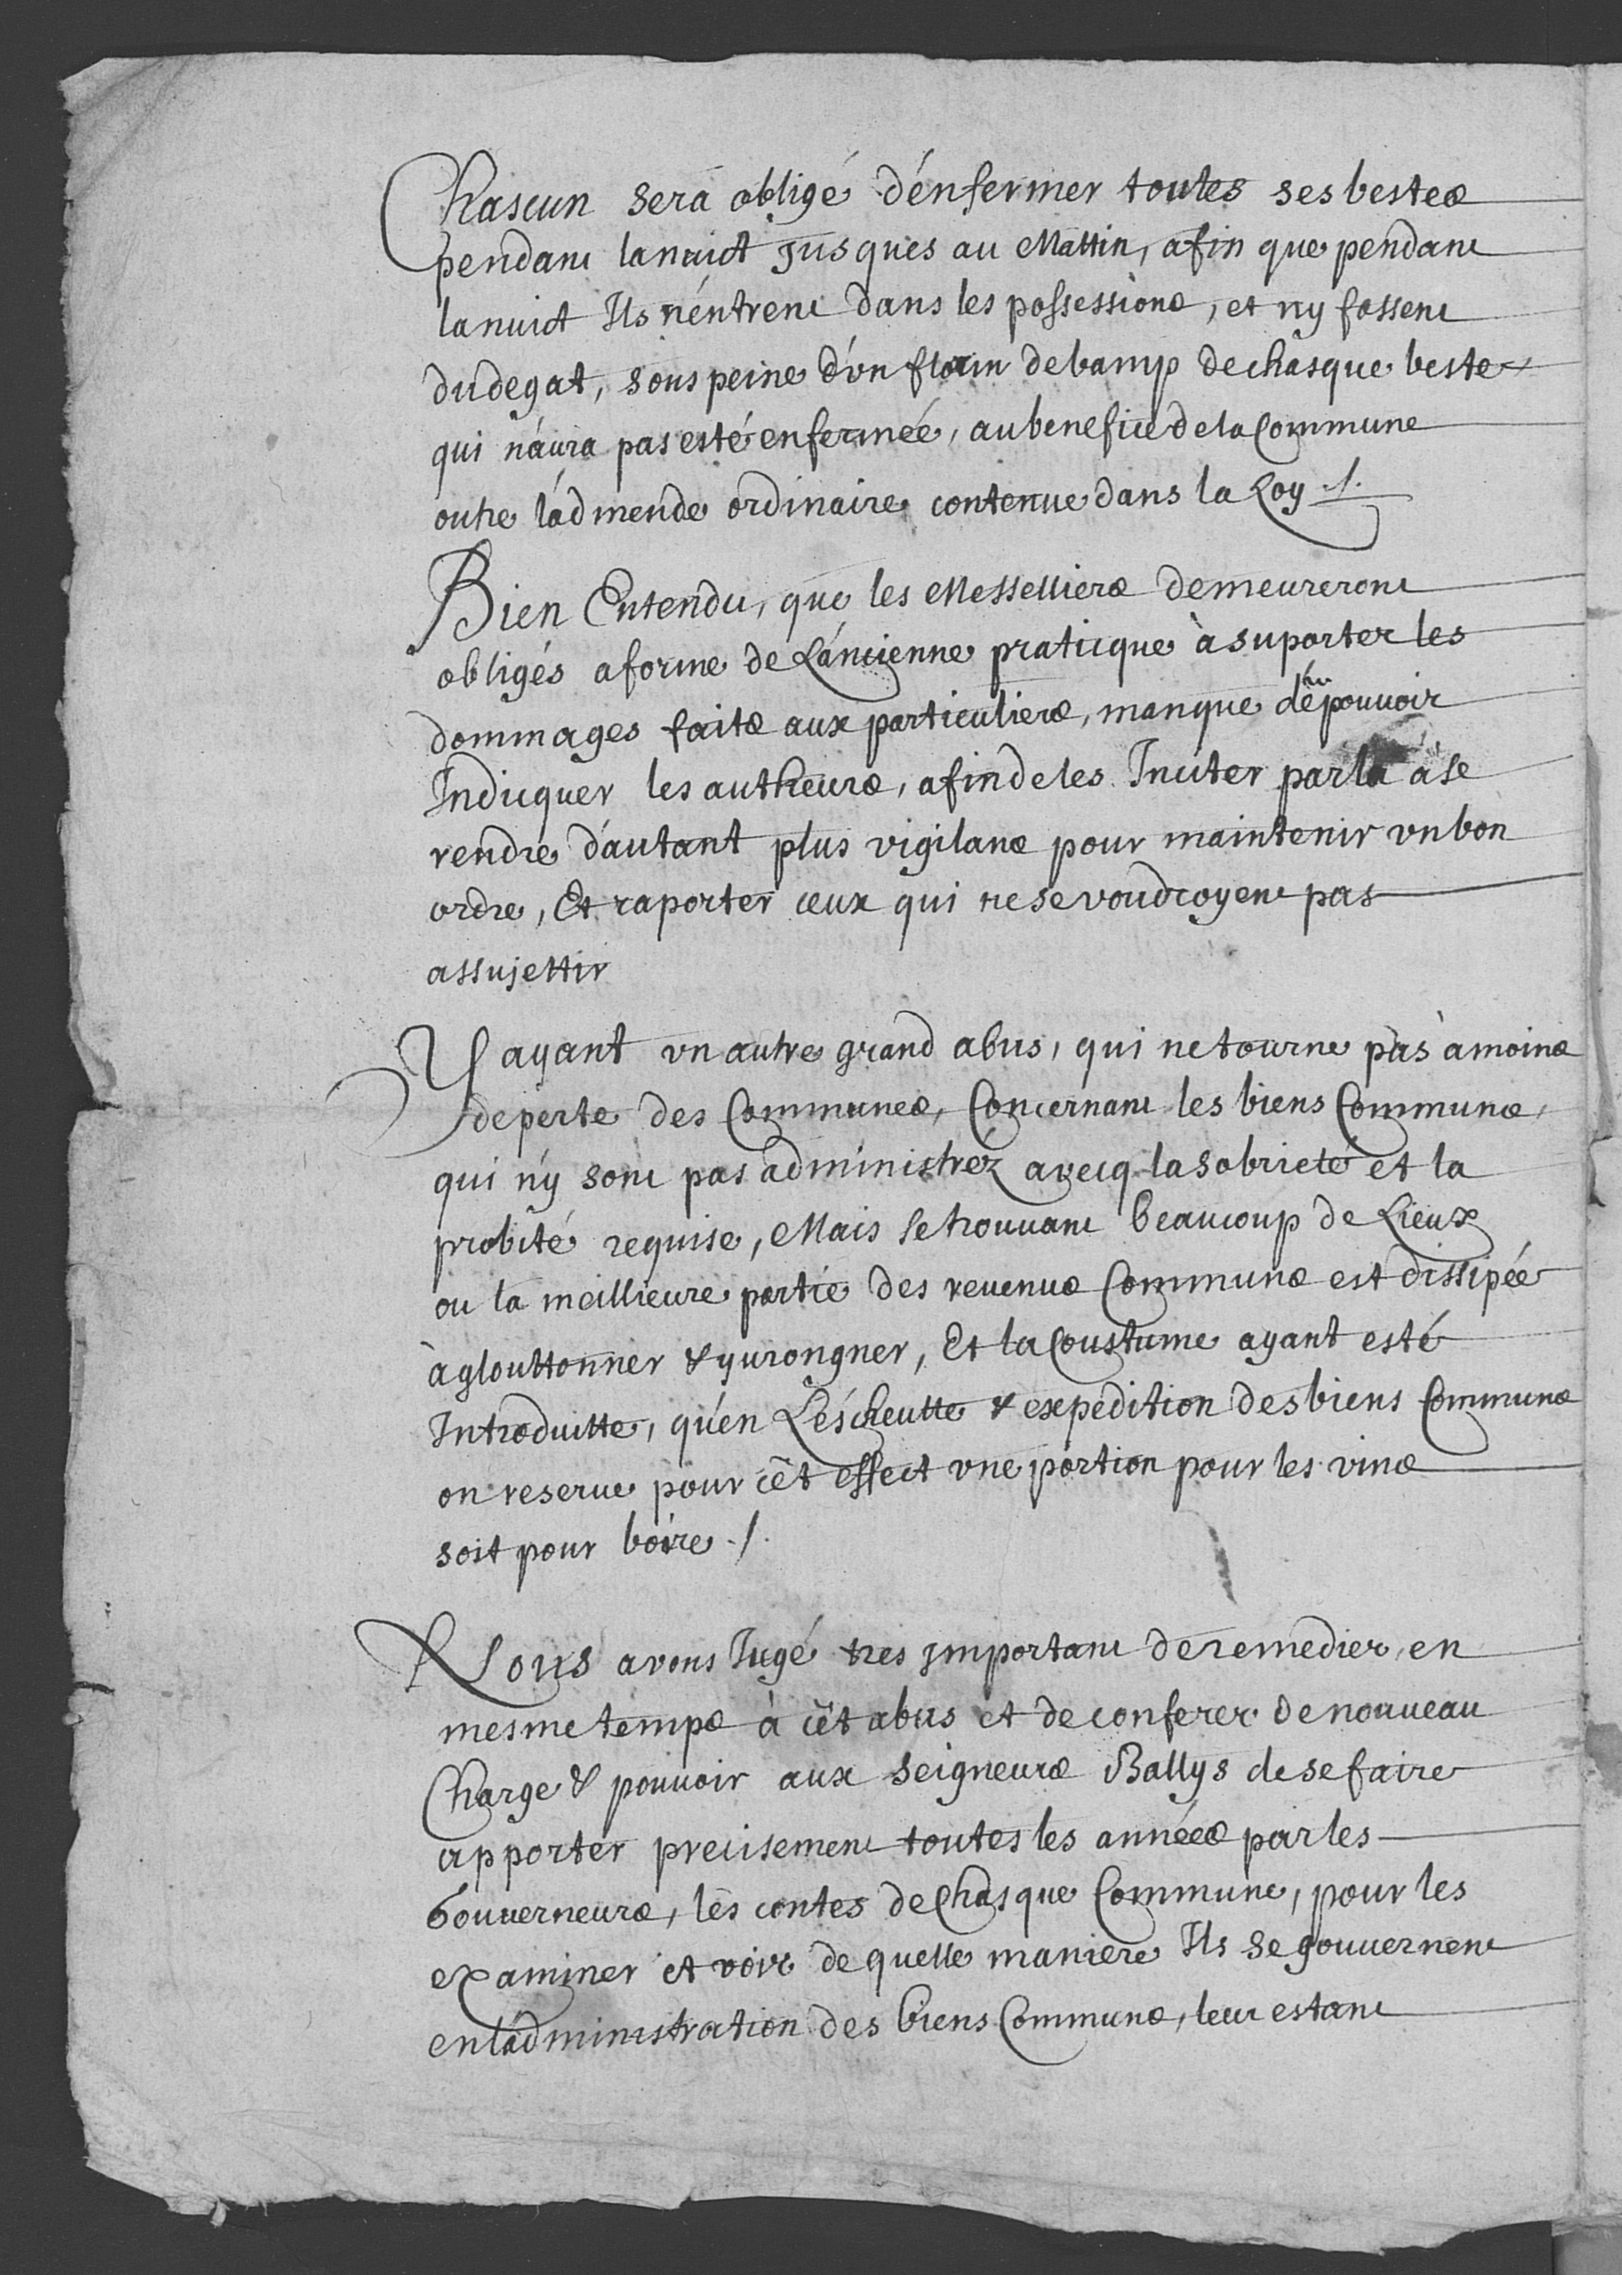 Chascun sera obligé d'énfermer toutes ses bestes
pendant la nuict Jusques au Mattin, afin que pendant
la nuict Ils n'éntrent dans les possessions, et n'y fassent
du degat, sous peine d'vn florin de bamp de chasque beste
qui n'áura pas esté enfermée, au benefice de la Commune
outre l'ádmende ordinaire contenue dans la Loy ./.
Bien Entendu, que les Messelliers demeureront
obligés a forme de L'áncienne praticque à suporter les
dommages faits aux particuliers, manque dé pouvoir
Indicquer les autheurs, afin de les Inciter par la à se
rendre d'áutant plus vigilans pour maintenir vn bon
ordre, Et raporter ceux qui ne se voudroyent pas
assujettir
Y ayant vn autre grand abus, qui ne tourne pas à moins
de perte des Communes, Concernant les biens Communs,
qui n'y sont pas administréz avecq la sobrieté et la
probité requise, Mais se trouvant beaucoup de Lieux
ou la meillieure partie des revenus Communs est dissipée
à glouttonner & yurongner, Et la Coustume ayant esté
Introduitte, qu'én L'éscheutte & expedition des biens Communs
on reserve pour cêt effect vne portion pour les vins
soit pour boire ./.
Nous avons Jugé tres important de remedier en
mesme temps à cêt abus et de conferer de nouveau
Charge & pouvoir aux Seigneurs Ballys de se faire
apporter precisement toutes les années par les
Gouverneurs, les contes de Chasque Commune, pour les
examiner et voir de quelle maniere Ils se gouvernent
en l'ádministration des biens Communs, leur estant